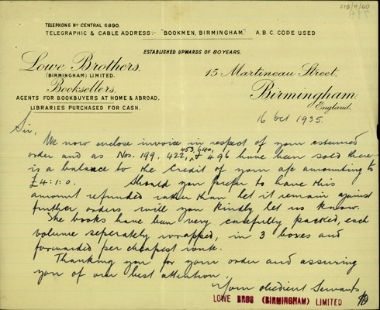 TELEPHONE BY CENTRAL 6890.
TELEGRAPHIC & CABLE ADDRESS: "BOOKMEN, BIRMINGHAM." A.B.C. CODE USED
ESTABLISHED UPWARDS OF 80 YEARS.
Lowe Brothers,
(BIRMINGHAM) LIMITED.
Booksellers,
AGENTS FOR BOOKBUYERS AT HOME & ABROAD,
LIBRARIES PURCHASED FOR CASH.
15 Martineau Street,
Birmingham,
England,
16 Oct 1935.
Sir,
We now enclose invoice in respect of your esteemed
order and as Nos. 199, 422, 453, 640, & 496 have been sold there
is a balance to the credit of your a/c amounting to
£4:1:0. Should you prefer to have this
amount refunded rather than let it remain against
further orders will you kindly let us know.
The books have been very carefully packed, each
volume seperately wrapped, in 3 boxes and
forwarded per cheapest route.
Thanking you for your order and assuring
you of our best attention.
Your obedient Servants
LOWE BROS (BIRMINGHAM) LIMITED